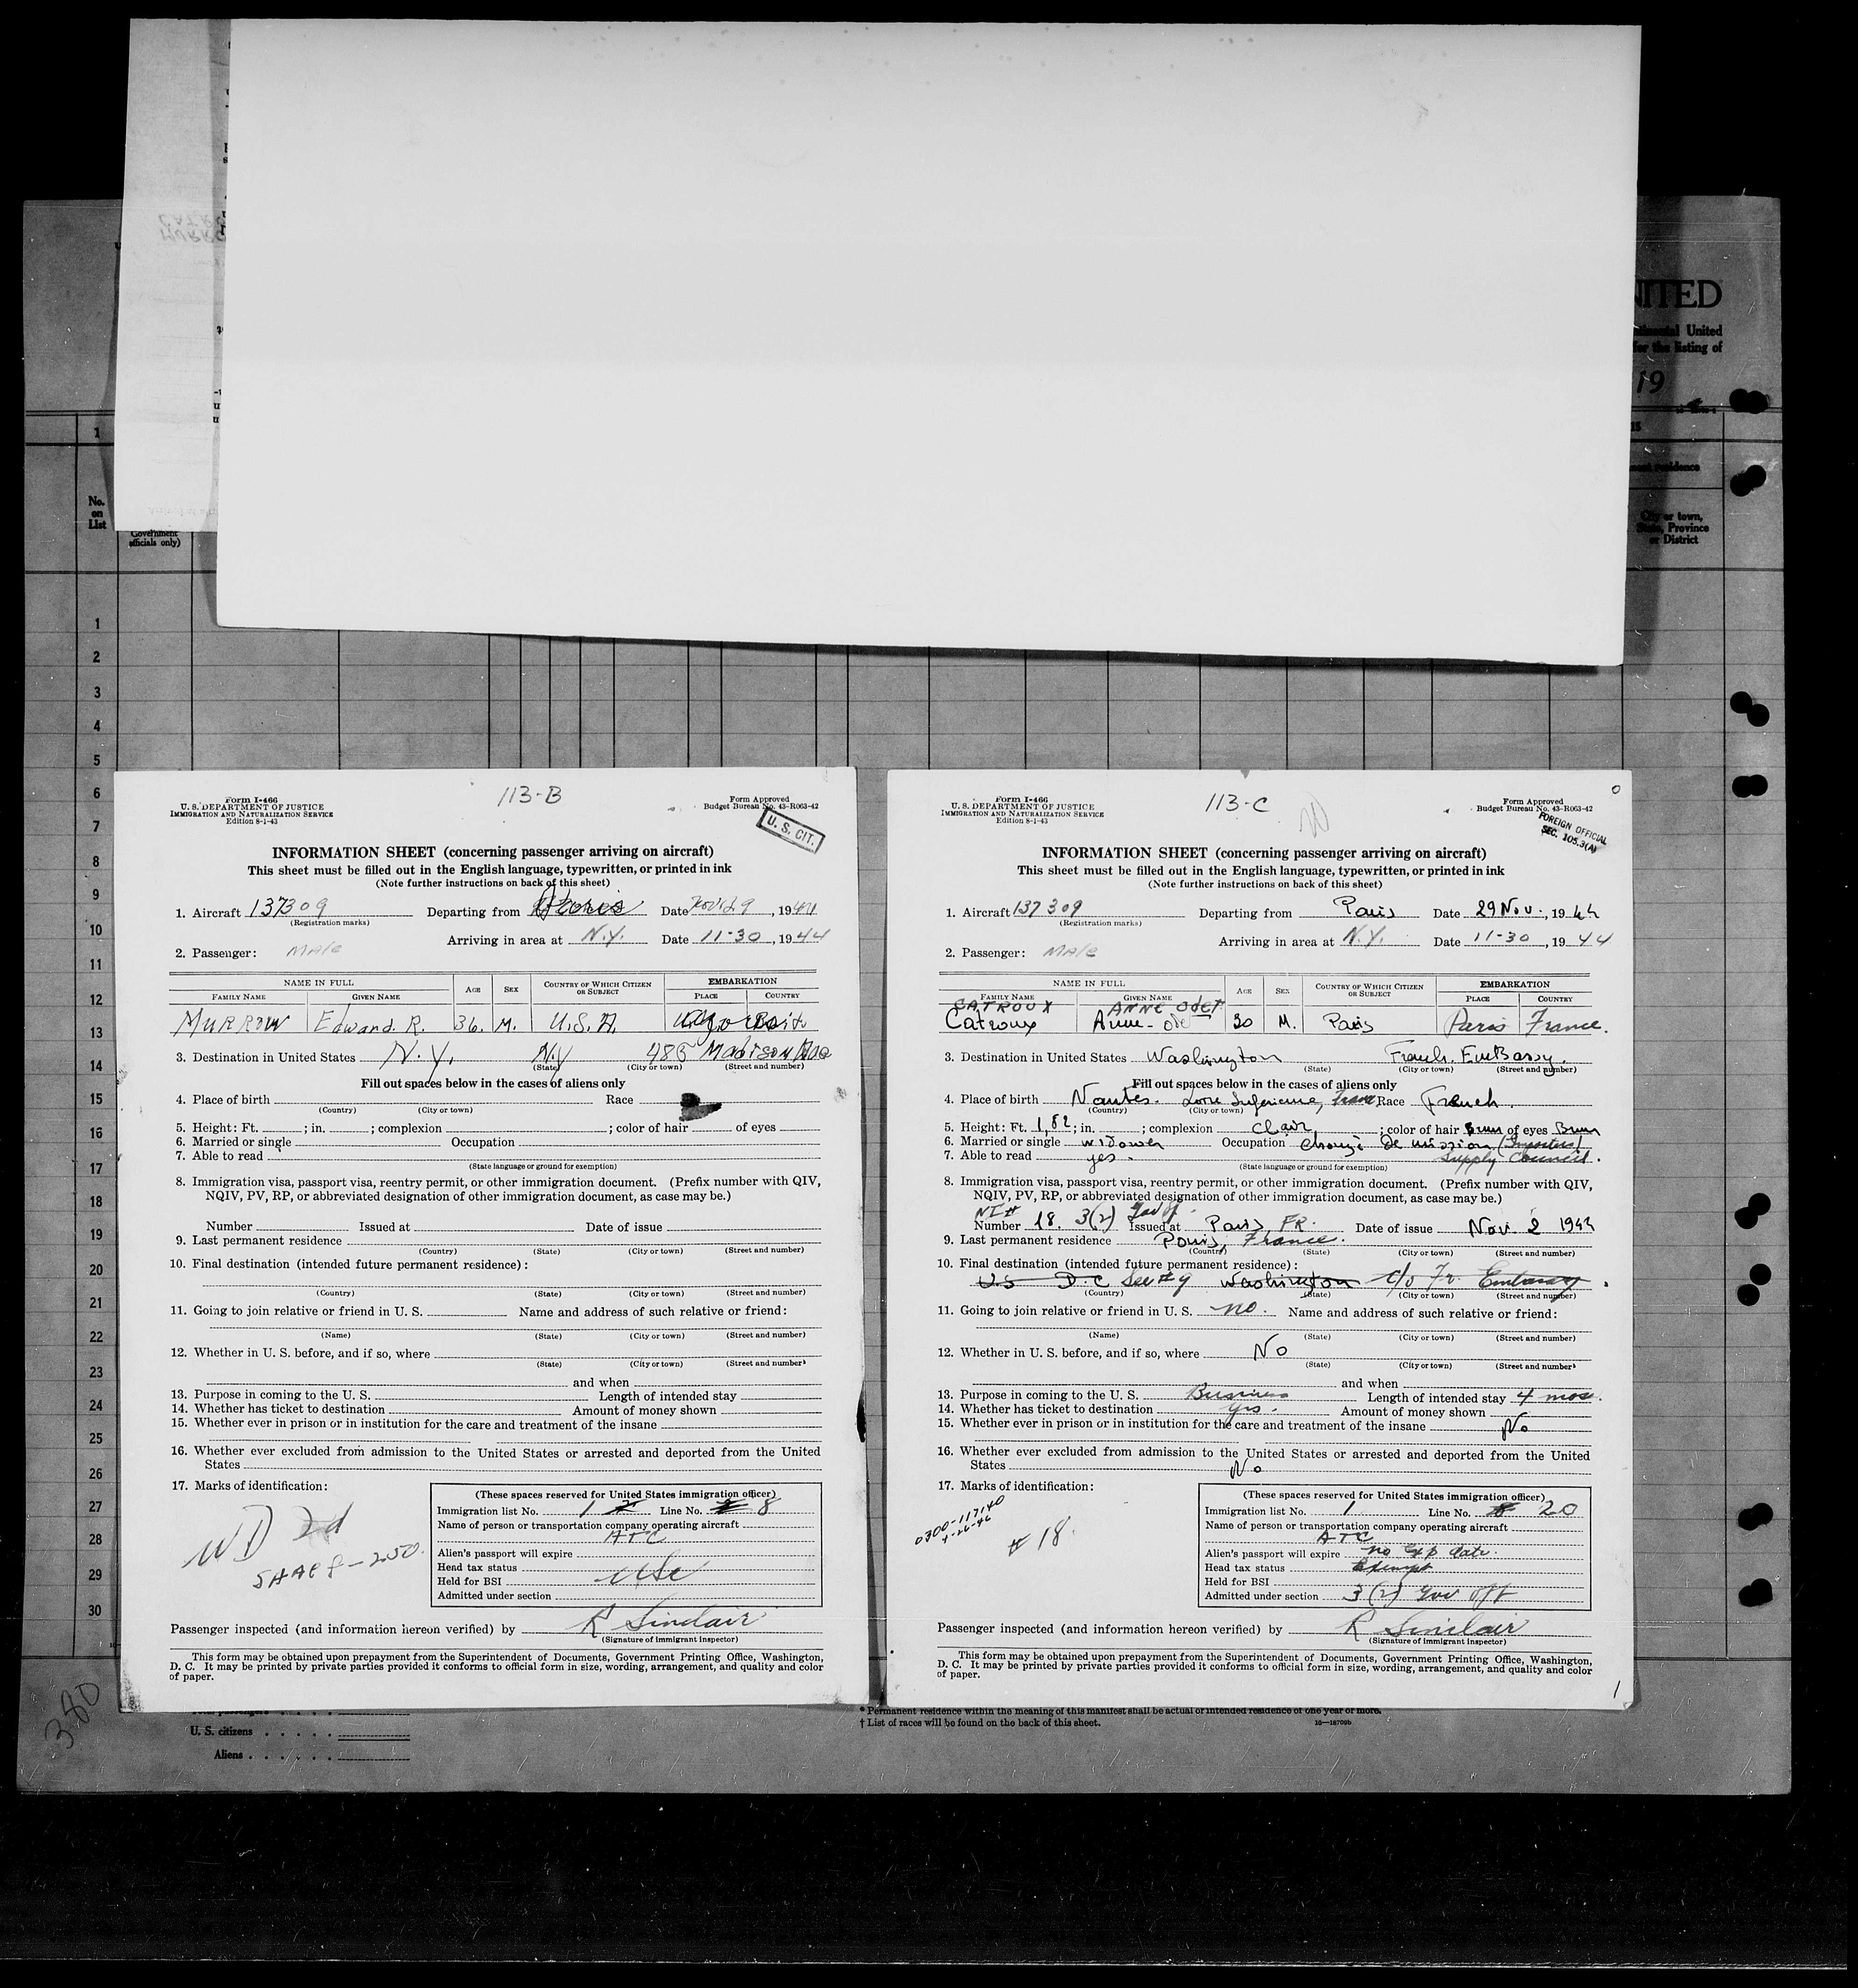 NITED
continental United
for the listing of
19
1
15
No.
on
List
Government
officials only)
City or town,
State, Province
or District
1
2
3
4
5
6
7
8
9
10
11
12
13
14
15
16
17
18
19
20
21
22
23
24
25
26
27
28
29
30
380
113-B
Form I-466
U. S. DEPARTMENT OF JUSTICE
IMMIGRATION AND NATURALIZATION SERVICE
Edition 8-1-43
Form Approved
Budget Bureau No. 43-R063-42
U. S. CIT.
INFORMATION SHEET (concerning passenger arriving on aircraft)
This sheet must be filled out in the English language, typewritten, or printed in ink
(Note further instructions on back of this sheet)
1. Aircraft 137309 Departing from Paris Date Nov 29, 1944
(Registration marks)
Arriving in area at N.Y. Date 11-30, 1944
2. Passenger: Male
NAME IN FULL AGE SEX COUNTRY OF WHICH CITIZEN OR SUBJECT EMBARKATION
FAMILY NAME GIVEN NAME PLACE COUNTRY
MURROW Edward. R. 36. M. U.S.A.
3. Destination in United States N.Y. N.Y 485 Madison Ave
(State) (City or town) (Street and number)
Fill out spaces below in the cases of aliens only
4. Place of birth Race
(Country) (City or town)
5. Height: Ft. ; in. ; complexion ; color of hair of eyes
6. Married or single Occupation
7. Able to read
(State language or ground for exemption)
8. Immigration visa, passport visa, reentry permit, or other immigration document. (Prefix number with QIV,
NQIV, PV, RP, or abbreviated designation of other immigration document, as case may be.)
Number Issued at Date of issue
9. Last permanent residence
(Country) (State) (City or town) (Street and number)
10. Final destination (intended future permanent residence):
(Country) (State) (City or town) (Street and number)
11. Going to join relative or friend in U. S. Name and address of such relative or friend:
(Name) (State) (City or town) (Street and number)
12. Whether in U. S. before, and if so, where
(State) (City or town) (Street and number)
and when
13. Purpose in coming to the U. S. Length of intended stay
14. Whether has ticket to destination Amount of money shown
15. Whether ever in prison or in institution for the care and treatment of the insane
16. Whether ever excluded from admission to the United States or arrested and deported from the United
States
17. Marks of identification:
WD 2d
SHAEF-250
(These spaces reserved for United States immigration officer)
Immigration list No. 1 Line No. 8
Name of person or transportation company operating aircraft
ATC
Alien's passport will expire
Head tax status
Held for BSI USC
Admitted under section
Passenger inspected (and information hereon verified) by R Sinclair
(Signature of immigrant inspector)
This form may be obtained upon prepayment from the Superintendent of Documents, Government Printing Office, Washington,
D. C. It may be printed by private parties provided it conforms to official form in size, wording, arrangement, and quality and color
of paper.
113-C
Form I-466
U. S. DEPARTMENT OF JUSTICE
IMMIGRATION AND NATURALIZATION SERVICE
Edition 8-1-43
Form Approved
Budget Bureau No. 43-R063-42
FOREIGN OFFICIAL
SEC. 105.3(A)
INFORMATION SHEET (concerning passenger arriving on aircraft)
This sheet must be filled out in the English language, typewritten, or printed in ink
(Note further instructions on back of this sheet)
1. Aircraft 137309 Departing from Paris Date 29 Nov., 1944
(Registration marks)
Arriving in area at N.Y. Date 11-30, 1944
2. Passenger: Male
NAME IN FULL AGE SEX COUNTRY OF WHICH CITIZEN OR SUBJECT EMBARKATION
FAMILY NAME GIVEN NAME PLACE COUNTRY
CATROUX ANNE Odet
Catroux Anne-Ode 30 M. Paris Paris France.
3. Destination in United States Washington French. EmBassy.
(State) (City or town) (Street and number)
Fill out spaces below in the cases of aliens only
4. Place of birth Nantes. Loire Inferieure, France Race French.
(Country) (City or town)
5. Height: Ft. 1,82; in. ; complexion Clair ; color of hair Brun of eyes Brun
6. Married or single widower Occupation chargé De mission (Importers)
7. Able to read yes. Supply Council.
(State language or ground for exemption)
8. Immigration visa, passport visa, reentry permit, or other immigration document. (Prefix number with QIV,
NQIV, PV, RP, or abbreviated designation of other immigration document, as case may be.)
Number 18. 3(2) Issued at Paris FR. Date of issue Nov. 2 1944
9. Last permanent residence Paris, France.
(Country) (State) (City or town) (Street and number)
10. Final destination (intended future permanent residence):
US D.C See #9 Washington c/o Fr. Embassy.
(Country) (State) (City or town) (Street and number)
11. Going to join relative or friend in U. S. no. Name and address of such relative or friend:
(Name) (State) (City or town) (Street and number)
12. Whether in U. S. before, and if so, where No
(State) (City or town) (Street and number)
and when
13. Purpose in coming to the U. S. Business Length of intended stay 4 mos.
14. Whether has ticket to destination yes. Amount of money shown
15. Whether ever in prison or in institution for the care and treatment of the insane No
16. Whether ever excluded from admission to the United States or arrested and deported from the United
States No
17. Marks of identification:
0300-117140
#18.
(These spaces reserved for United States immigration officer)
Immigration list No. 1 Line No. 20
Name of person or transportation company operating aircraft
ATC
Alien's passport will expire no Exp date.
Head tax status Exempt
Held for BSI
Admitted under section 3(2) Gov off
Passenger inspected (and information hereon verified) by R Sinclair
(Signature of immigrant inspector)
This form may be obtained upon prepayment from the Superintendent of Documents, Government Printing Office, Washington,
D. C. It may be printed by private parties provided it conforms to official form in size, wording, arrangement, and quality and color
of paper.
U. S. citizens
Aliens
* Permanent residence within the meaning of this manifest shall be actual or intended residence of one year or more.
† List of races will be found on the back of this sheet.